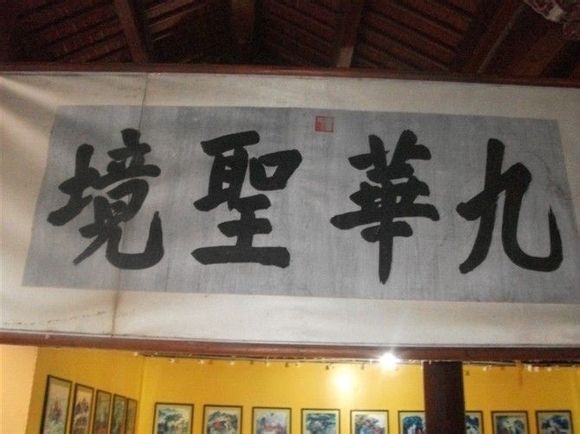 九華聖境